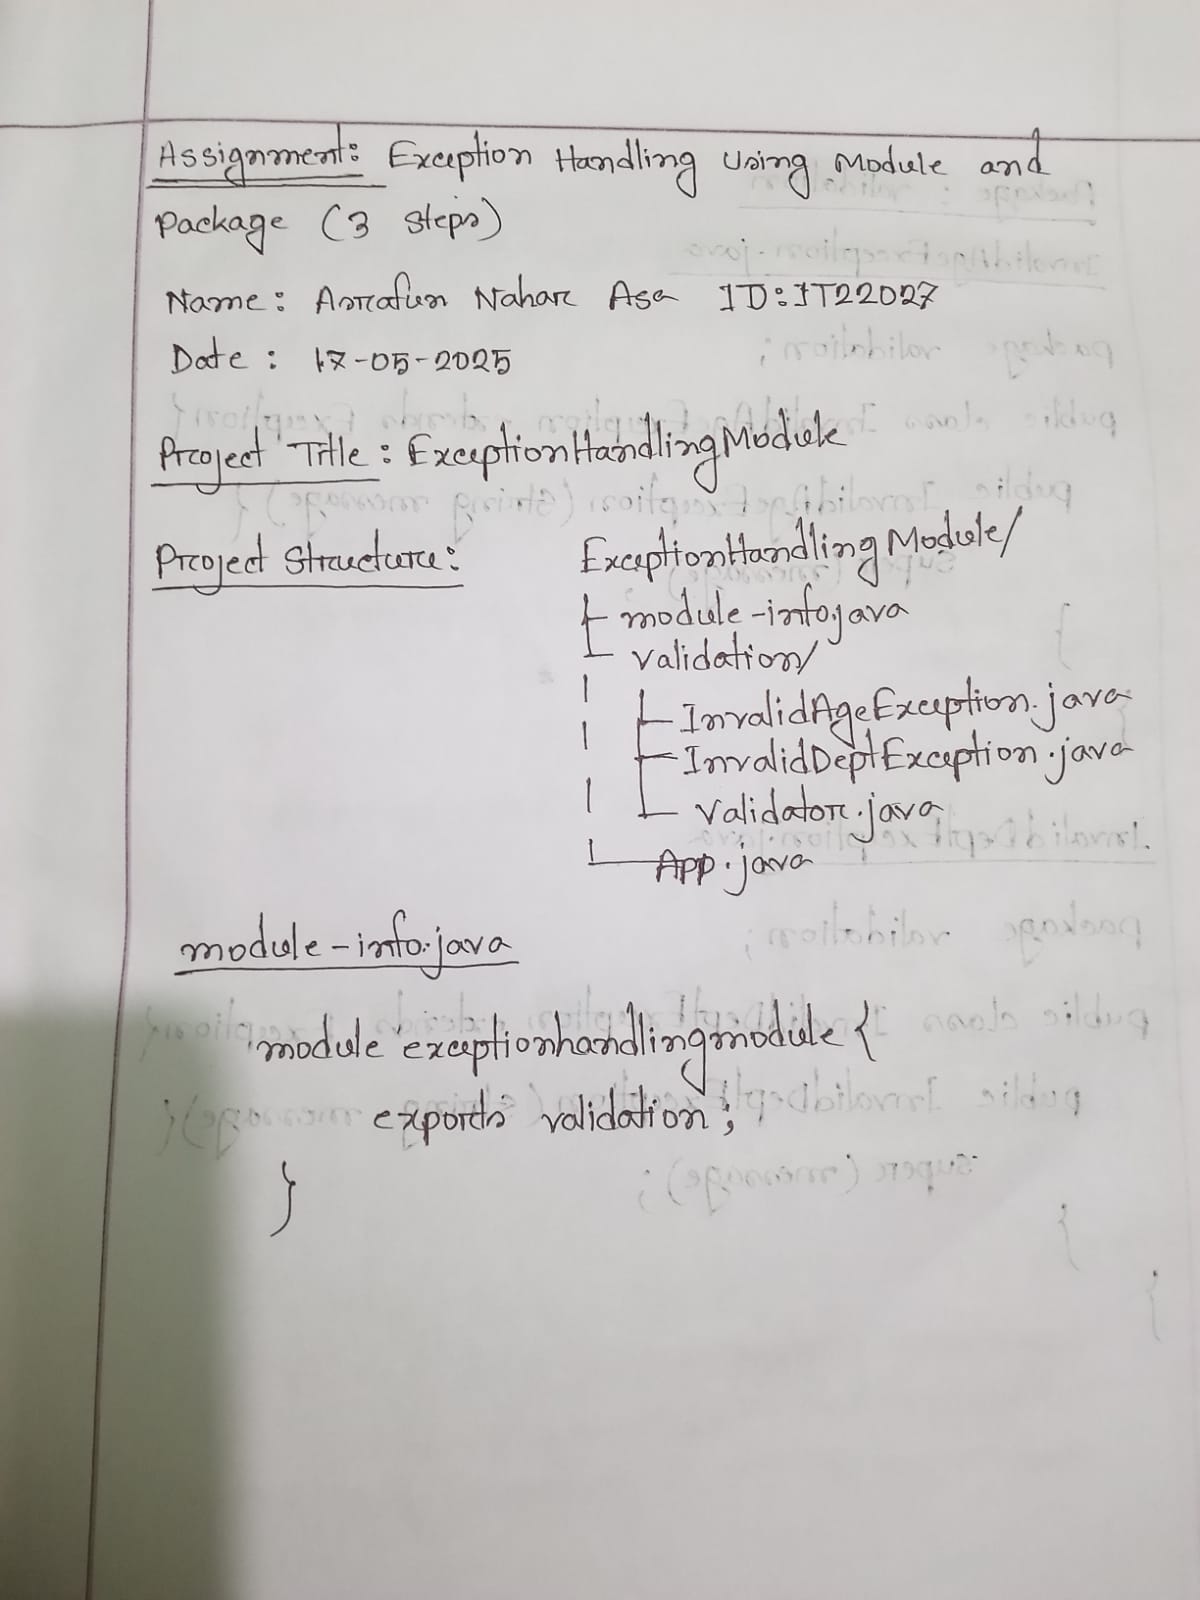 Assignment: Exception Handling Using Module and
Package (3 steps)
Name: Asrafun Nahar Asa ID:IT22027
Date: 17-05-2025
Project Title: ExceptionHandlingModule
Project Structure:
ExceptionHandlingModule/
module-info.java
validation/
InvalidAgeException.java
InvalidDeptException.java
Validator.java
App.java
module-info.java
module exceptionhandlingmodule {
exports validation;
}